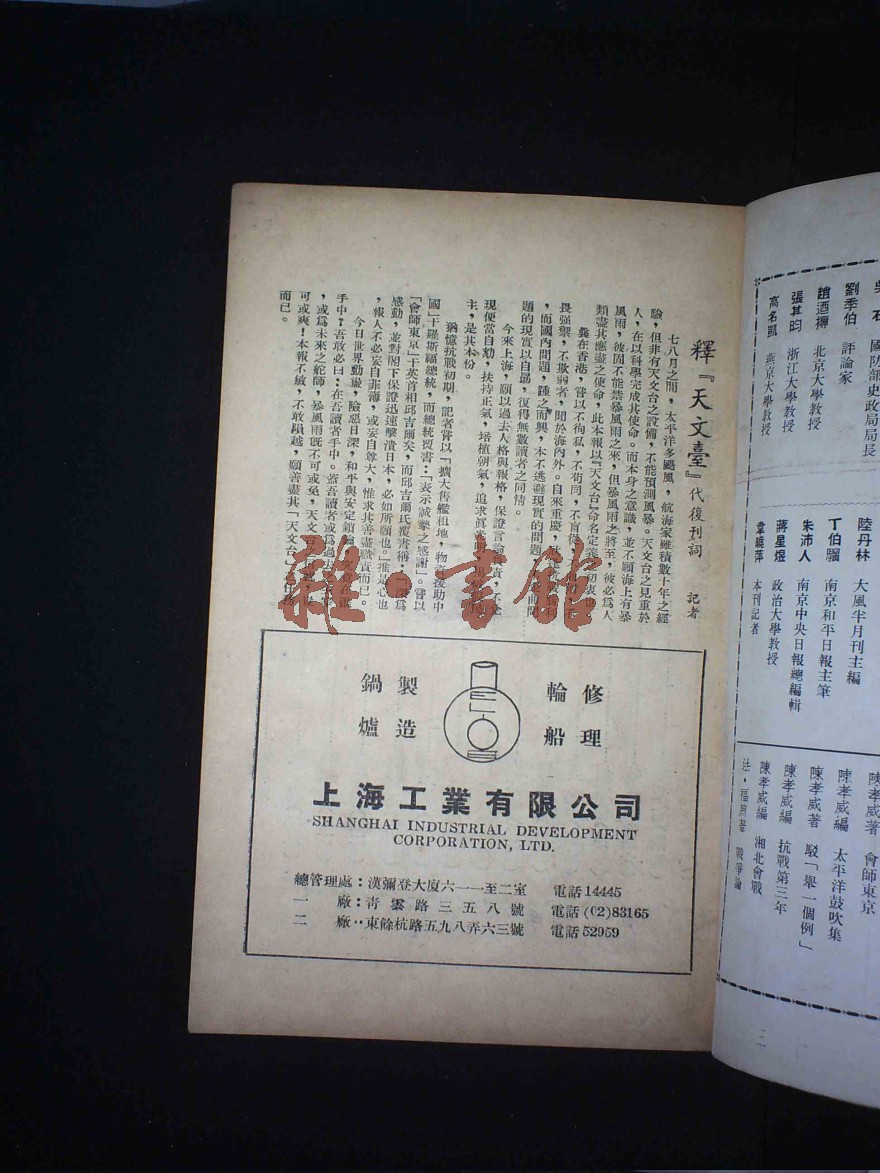 釋『天文臺』代復刊詞
記者
七八月之間，太平洋多颶風，航海家雖積數十年之經
驗，但非有天文台之設備，不能預測風暴。天文台之見重於
人，在以科學完成其使命。而本身之意識，並不願海上有暴
風雨，彼固不能禁暴風雨之來，但暴風雨之將至，彼必爲人
類盡其應盡之使命，此本報以『天文台』命名定義
曩在香港，嘗以不徇私，不苟同，不盲從
畏强禦，不欺弱者，聞於海內外。自來重慶，
，而國內問題，踵之而興，本不逃避現實的問題
題的現實以自勗，復得無數讀者之同情。
今來上海，願以過去人格與報格，保證言論
現便當自勀，扶持正氣，培植朝氣，追求眞
主，是其本份。
猶憶抗戰初期，記者嘗以「擴大售艦租地，物資援助中
國」干羅斯福總統，而總統覆書：「表示誠摯之感謝」。嘗以
「會師東京」干英首相邱吉爾矣，而邱吉爾氏覆書稱，「深爲
感動，並對閣下保證迅速擊潰日本，必如所願也。」推是心也
，報人不必妄自菲薄，或妄自尊大，惟求其善盡職責而已。
今日世界動盪，險惡日深，和平與安定鎖
手中？吾敢必曰：在吾讀者手中。蓋吾讀者或爲過去
，或爲未來之舵師，暴風雨既不可或免，天文台
可或爽！本報不敏，不敢隕越，願善盡其「天文台」
而已。
修理
輪船
製造
鍋爐
上海工業有限公司
SHANGHAI INDUSTRIAL DEVELOPMENT
CORPORATION, LTD.
總管理處：漢彌登大廈六一一至二室 電話14445
一廠：青雲路三五八號 電話(02)83165
二廠：東餘杭路五九八弄六三號 電話52959
龍書館
石 國防部史政局局長
劉季伯 評論家
趙迺摶 北京大學教授
張其昀 浙江大學教授
高名凱 燕京大學教授
陸丹林 大風半月刊主編
丁伯騮 南京和平日報主筆
朱沛人 南京中央日報總編輯
蔣星煜 政治大學教授
韋曉萍 本刊記者
陳孝威著 會師東京
陳孝威編 太平洋鼓吹集
陳孝威著 駁「舉一個例」
陳孝威編 抗戰第三年
陳孝威編 湘北會戰
法・福煦著 戰爭論
二